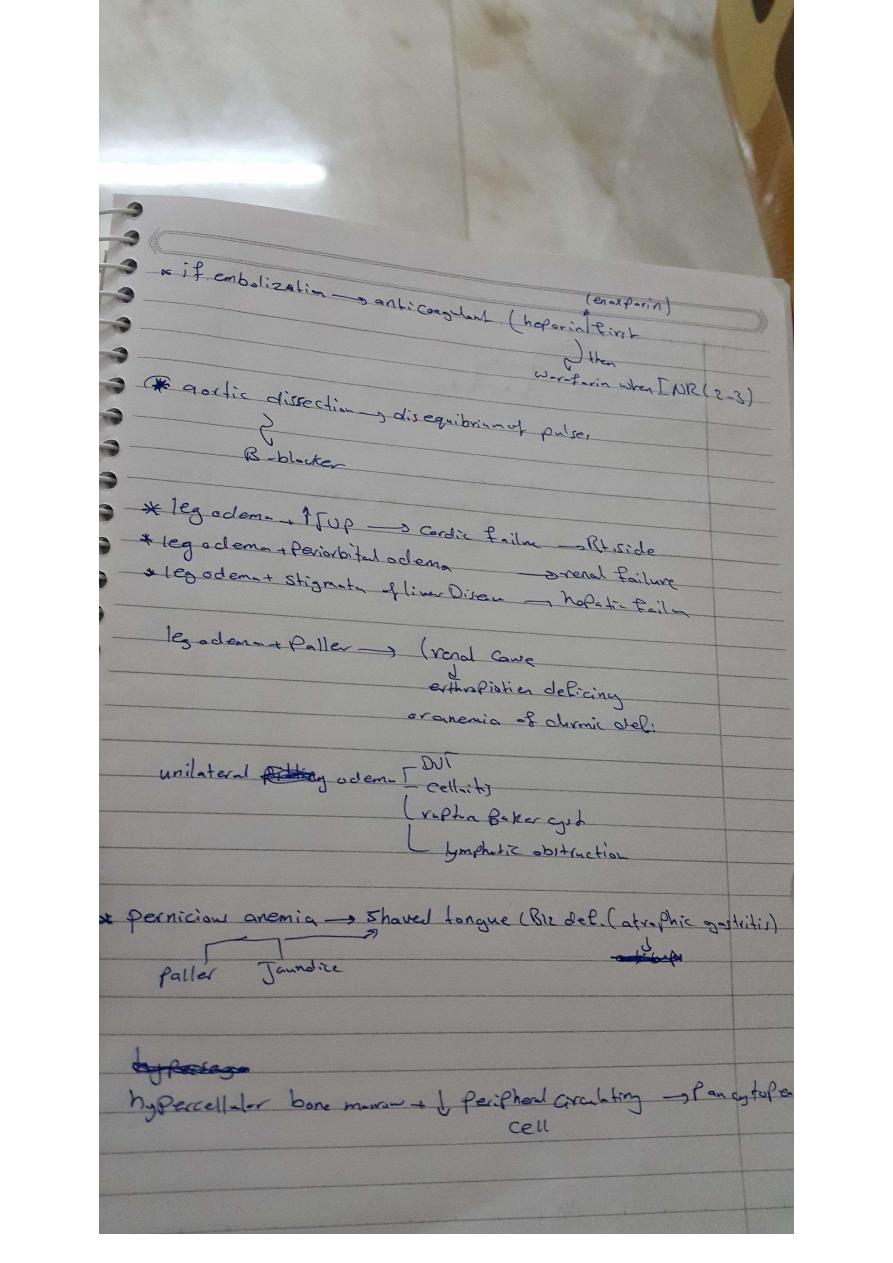 (enoxparin)
* if embolization → anticoagulant (heparin) first
then
warfarin when INR (2-3)
* aortic dissection → disequibrium of pulses
B-blocker
* leg odema + ↑JVP → Cardic failure → Rt. side
* leg odema + Periorbital odema → renal failure
* leg odema + stigmata of liver Disease → hepatic failure
leg odema + Paller → (renal cause
erthropiotien deficincy
or anemia of chronic def.
unilateral odema DVT
cellulitis
rupture Baker cyst
lymphatic obstruction
* Pernicious anemia → Shaved tongue (B12 def. (atrophic gastritis)
Paller Jaundice
hypercellular bone marrow + ↓ Peripheral Circulating → Pancytope
cell